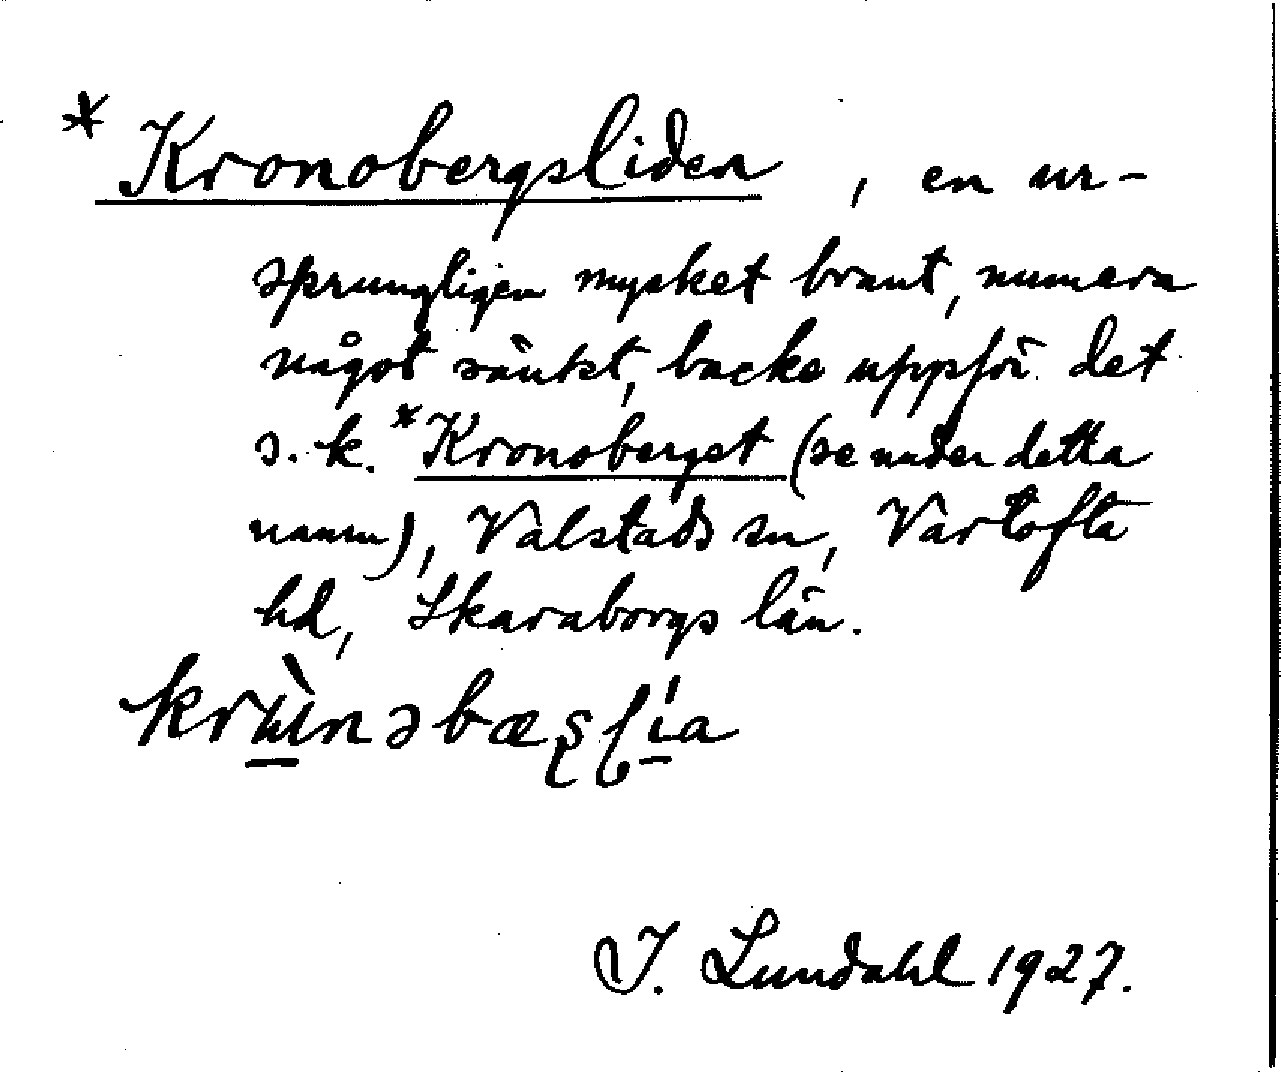 * Kronobergsliden, en ur-
sprungligen mycket brant, numera
något sänkt, backe uppför det
s. k. *Kronoberget (se under detta
namn), Valstads sn, Vartofta
hd, Skaraborgs län.
I. Lundahl 1927.